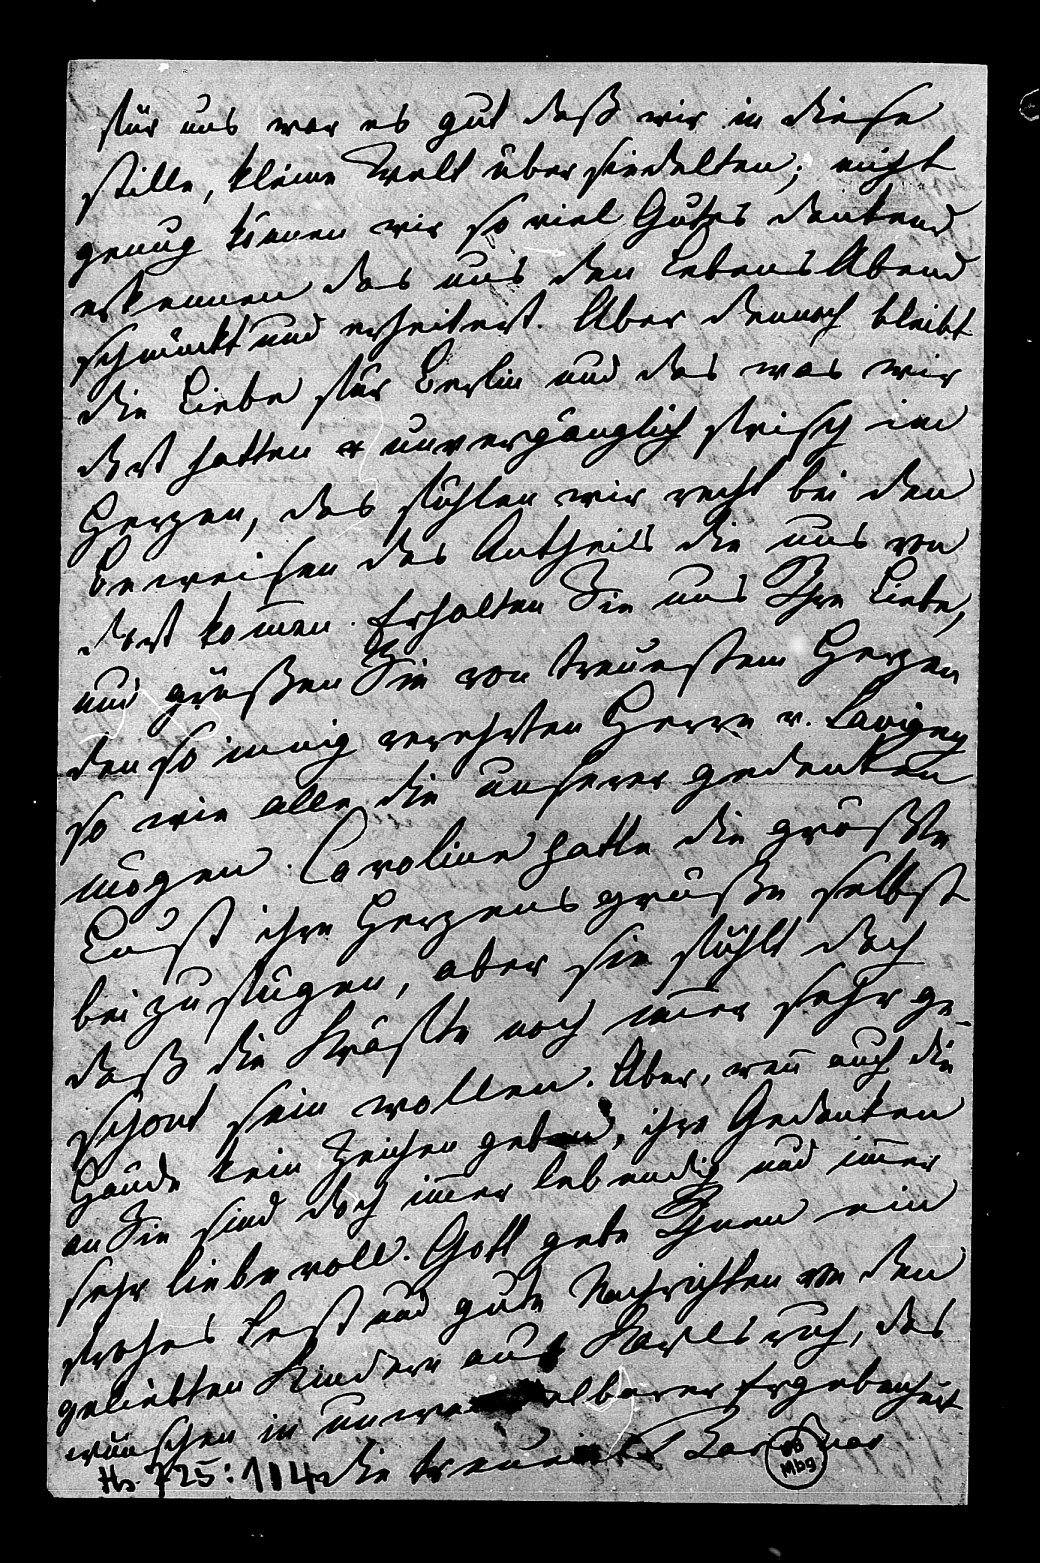 für uns war es gut daß wir in diese
stille, kleine Welt übersiedelten; nicht
genug können wir so viel Gutes dankend
erkennen das uns den Lebens Abend
schmückt und erheitert. Aber dennoch bleibt
die Liebe für Berlin und das was wir
dort hatten unvergänglich frisch im
Herzen, das fühlen wir recht bei den
Beweisen des Antheils die uns von
dort kom̄en. Erhalten Sie uns Ihre Liebe,
und grüßen Sie von treuestem Herzen
den so innig verehrten Herrn v. Savigny
so wie alle die unserer gedenken
mögen. Caroline hatte die größte
Lust ihre Herzensgrüße selbst
beizufügen, aber sie fühlt doch
daß die Kräfte noch im̄er sehr ge-
schont sein wollen. Aber, wen̄ auch die
Hände kein Zeichen geben, ihre Gedanken
an Sie sind doch im̄er lebendig und im̄er
sehr liebevoll. Gott gebe Ihnen ein
frohes Fest und gute Nachrichten von den
geliebten Kindern aus Karlsruh, das
wünschen in unwandelbarer Ergebenheit
die treuen
Hs. 725: 114
UB
Mbg